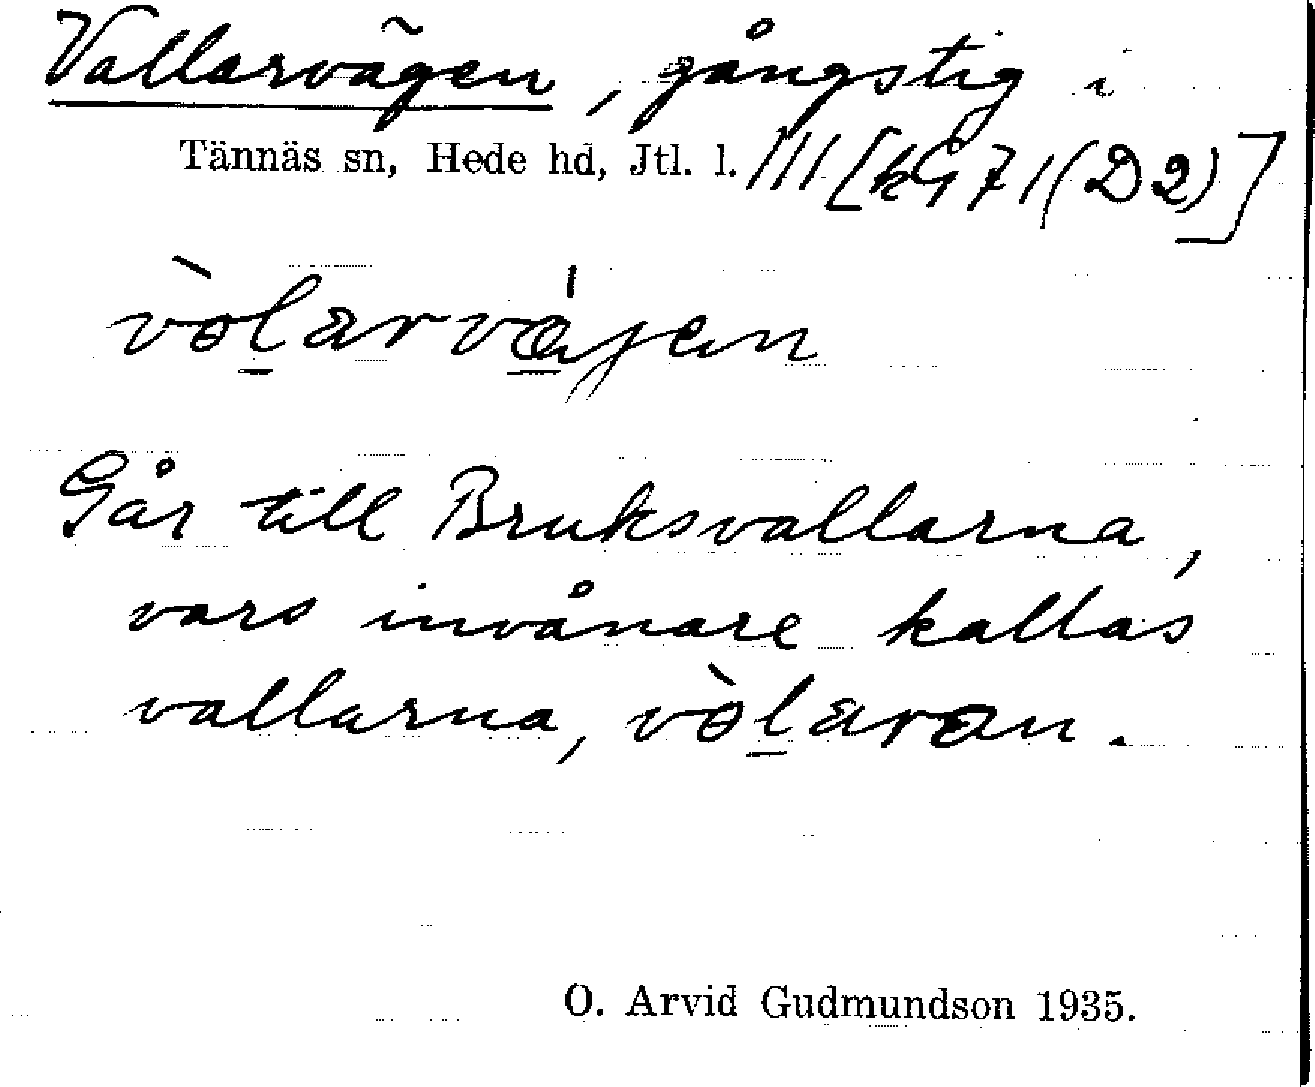 Vallarvägen, gångstig i
Tännäs sn, Hede hd, Jtl. l. III [kG 71 (D2)]
vòlarvájen
Går till Bruksvallarna,
vars invånare kallas
vallarna, vòlaran.
O. Arvid Gudmundson 1935.